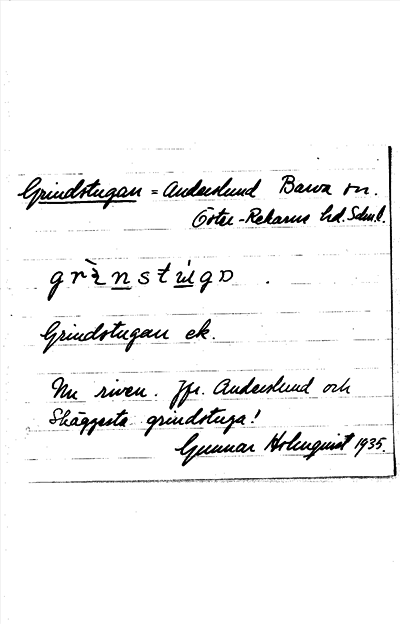 Grindstugan = Anderslund Barva sn.
Öster-Rekarne hd. Sdml.
grı̀nstu̇gɷ .
Grindstugan ek.
Nu riven. Jfr. Anderslund och
Skäggesta grindstuga!
Gunnar Holmquist 1935.